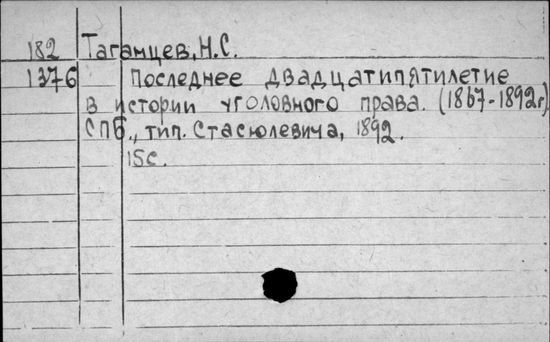 182 Таганцев, Н.С.
1376 Последнее двадцатипятилетие
в истории уголовного права. (1867-1892г)
СПб., тип. Стасюлевича, 1892.
15с.